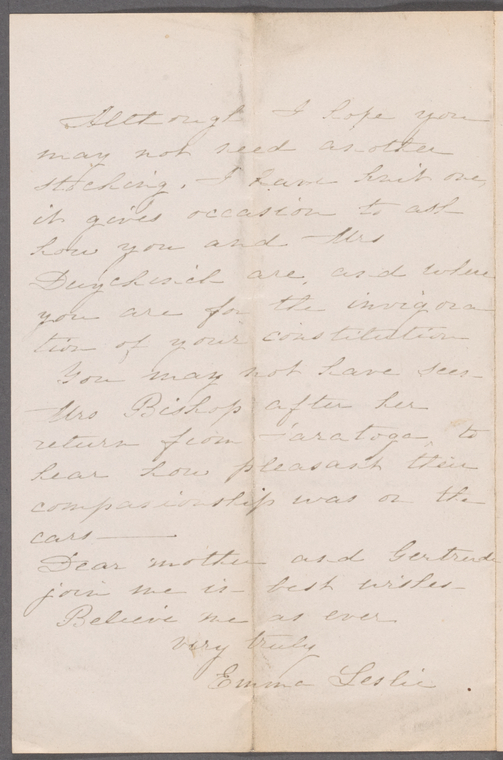 Although I hope you
may not need another
stocking, I have knit one,
it gives occasion to ask
how you and Mrs
Duyckinck are, and where
you are for the invigora
tion of your constitution
You may not have seen
Mrs Bishop after her
return from Saratoga, to
hear how pleasant their
companionship was on the
cars —
Dear mother and Gertrude
join me in best wishes
Believe me as ever
very truly
Emma Leslie.